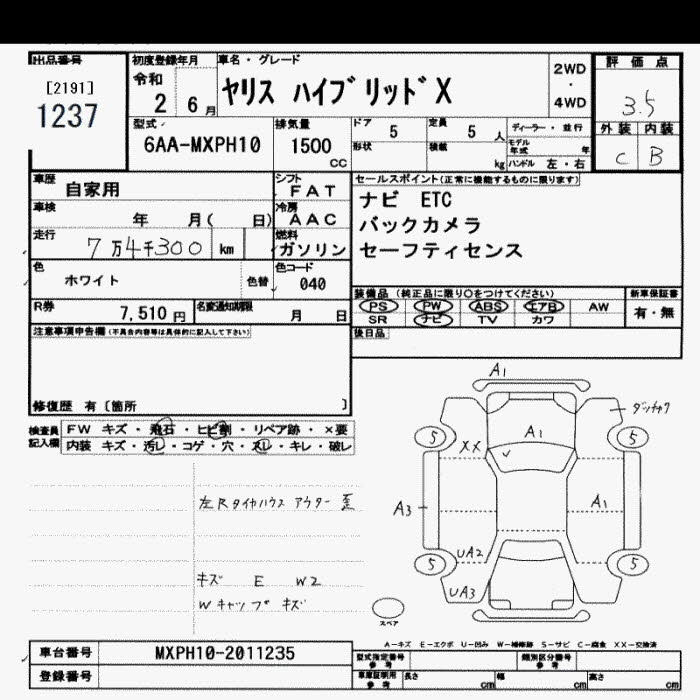 出品番号
[2191]
1237
初度登録年月
令和
2 6月
車名・グレード
ヤリス ハイブリッドX
2WD
・
4WD
評価点
3.5
外装 内装
C B
型式
6AA-MXPH10
排気量
1500
CC
ドア 5
定員 5 人
ディーラー・並行
形状
積載 kg
モデル年式 年
ハンドル 左・右
車歴
自家用
シフト
FAT
車検
年 月( 日)
冷房
AAC
走行
7万4千300 km
燃料
ガソリン
色
ホワイト
色替
色コード
040
R券
7,510 円
名変通知期限
月 日
セールスポイント(正常に機能するものに限ります)
ナビ ETC
バックカメラ
セーフティセンス
装備品 (純正品に限り○をつけてください)
PS PW ABS エアB AW
SR ナビ TV カワ
新車保証書
有・無
後日品
注意事項申告欄(不具合内容等は具体的に記入して下さい)
修復歴 有〔箇所 〕
検査員
記入欄
FW キズ・飛石・ヒビ割・リペア跡・×要
内装 キズ・汚レ・コゲ・穴・スレ・キレ・破レ
左Rタイヤハウス アウター 歪
キズ E W2
Wキャップ キズ
A1
5
5
XX
A1
A3
A1
UA2
5
5
UA3
スペア
A-キズ E-エクボ U-凹み W-補修跡 S-サビ C-腐食 XX-交換済
車台番号
MXPH10-2011235
登録番号
型式指定番号
参考
類別区分番号
参考
車庫証明用
参考
長さ cm
幅 cm
高さ cm